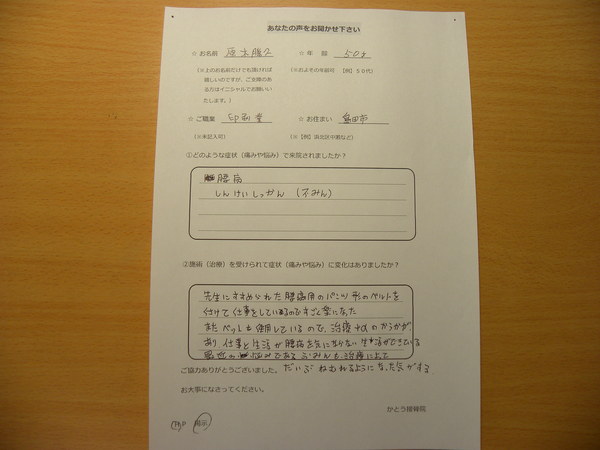 あなたの声をお聞かせ下さい
☆お名前 ☆年 齢 50才
(※上のお名前だけでも頂ければ (※およその年齢可 【例】50代)
嬉しいのですが、ご支障のあ
る方はイニシャルでお願いい
たします。)
☆ご職業 印刷業 ☆お住まい 島田市
(※未記入可) (※【例】葵区中町など)
①どのような症状(痛みや悩み)で来院されましたか?
腰痛
しんけいしっかん (不みん)
②施術(治療)を受けられて症状(痛みや悩み)に変化はありましたか?
先生にすすめられた腰痛用のパンツ形のベルトを
付けて仕事をしているのですごく楽になった
またベルトも使用しているので、治療+αのこうかが
あり 仕事と生活が腰痛を気にならない生活ができている
悩みである ふみんも、治療によって
ご協力ありがとうございました。 だいぶ ねむれるようになった気がする
お大事になさってください。
かとう接骨院